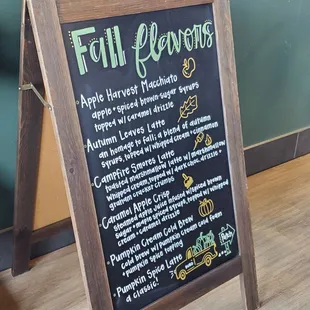 Fall flavors
Apple Harvest Macchiato
apple + spiced brown sugar syrups
topped w/ caramel drizzle
Autumn Leaves Latte
an homage to fall; a blend of autumn
syrups, topped w/ whipped cream + cinnamon
Campfire Smores Latte
toasted marshmallow latte w/ marshmallow
whipped cream + dark choc. drizzle,
graham cracker crumbs
Caramel Apple Crisp
steamed apple juice infused w/ spiced brown
sugar + maple syrups, topped w/ whipped
cream + caramel drizzle
Pumpkin Cream Cold Brew
cold brew w/ pumpkin spice cream foam
+ pumpkin spice topping
Pumpkin Spice Latte
a classic!